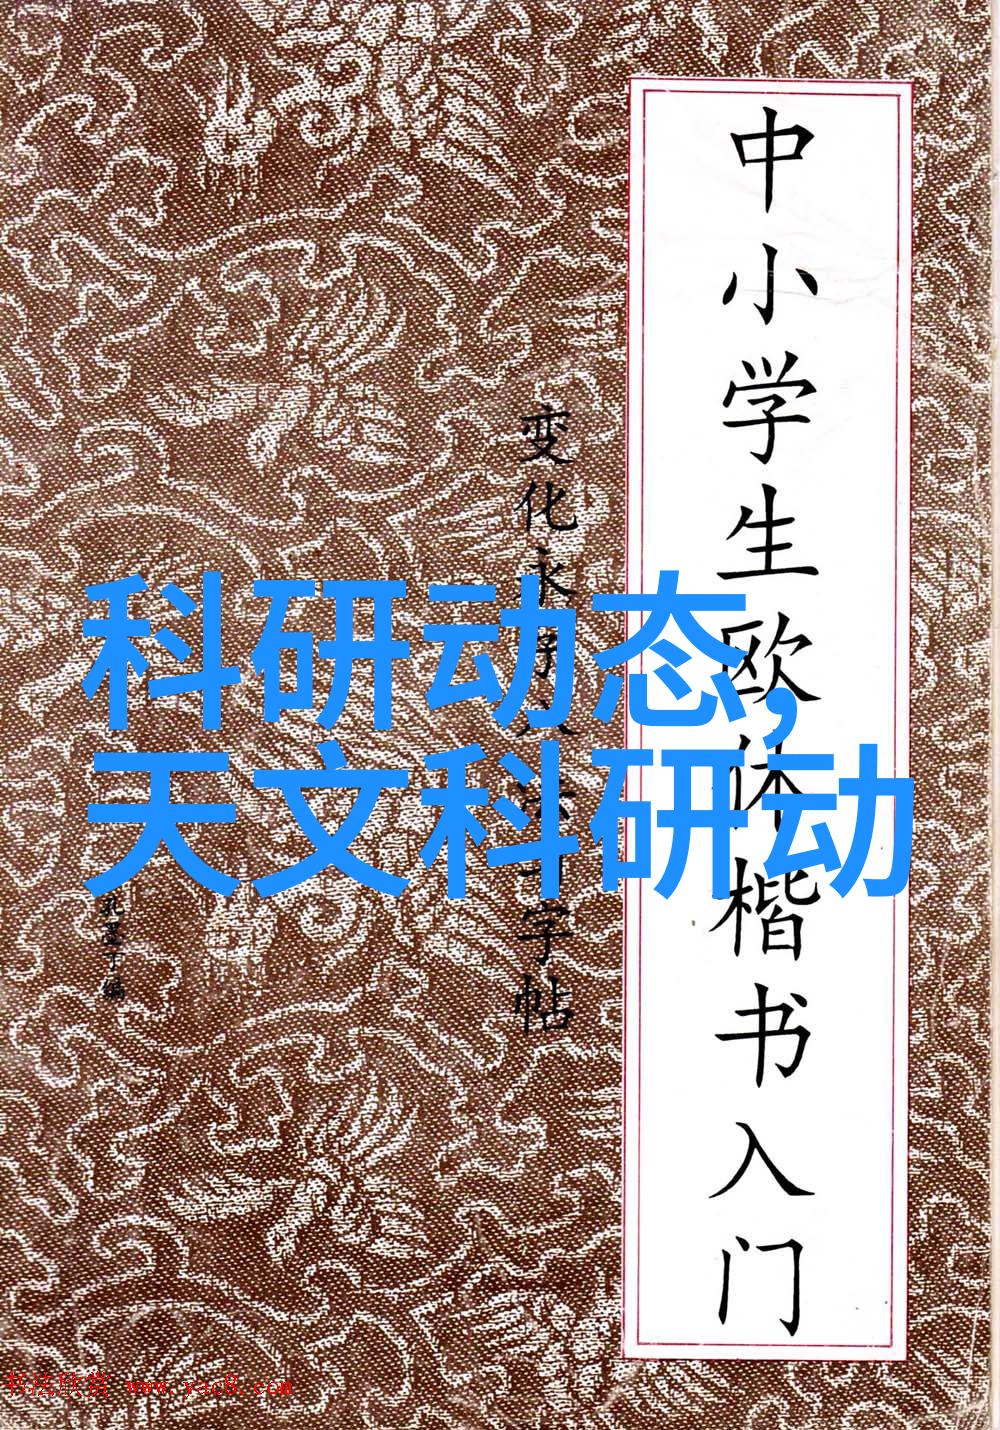 中小学生欧体楷书入门
变化永字八法习字帖
孔墨丁编
科研动态,
天文科研动
书法欣赏 www.yac8.com